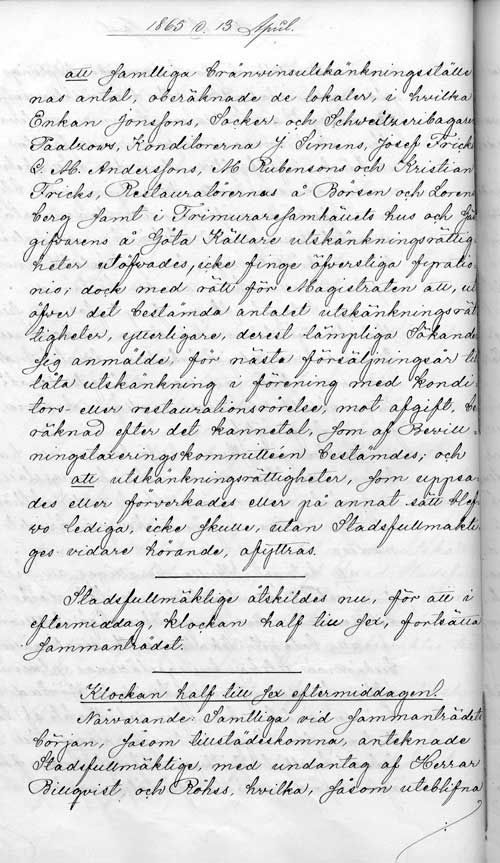 1865 d. 13 April.
att samtliga bränvinsutskänkningsställe
nas antal, oberäknade de lokaler, i hvilka
Enkan Jonssons, Socker och Schweitzeribagaren
Taalzows, Konditorerna J. Simens, Josef Fricks
C. M. Anderssons, M Rubensons och Kristian
Fricks, Restauratörernas å Börsen och Loren
berg samt i Frimuraresamhäuets hus och Gäst
gifvarens å Göta Källare utskänkningsrättig
heter utöfvades, icke finge öfverstiga
nio; dock med rätt för Magistraten att, ut
öfver det bestämda antalet utskänkningsrät
tigheter, ytterligare, derest lämpliga Sökande
sig anmälde, för näste försäljningsår till
låta utskänkning i förening med kondi
tors- eller restaurationsrörelse, mot afgift, be
räknad efter det kannetal, som af Bevill
ningstaxeringskommitteén bestämdes; och
att utskänkningsrättigheter, som uppsa
des eller förverkades eller på annat sätt blef
vo lediga, icke skulle, utan Stadsfullmäkti
ges vidare hörande, afyttras.
Stadsfullmäktige åtskildes nu, för att i
eftermiddag, klockan half till sex, fortsätta
sammanträdet.
Klockan half till sex eftermiddagen.
Närvarande: Samtliga vid sammanträdets
början, såsom tillstädeskomna, antecknade
Stadsfullmäktige, med undantag af Herrar
Billqvist och Röhss, hvilka, såsom uteblifna